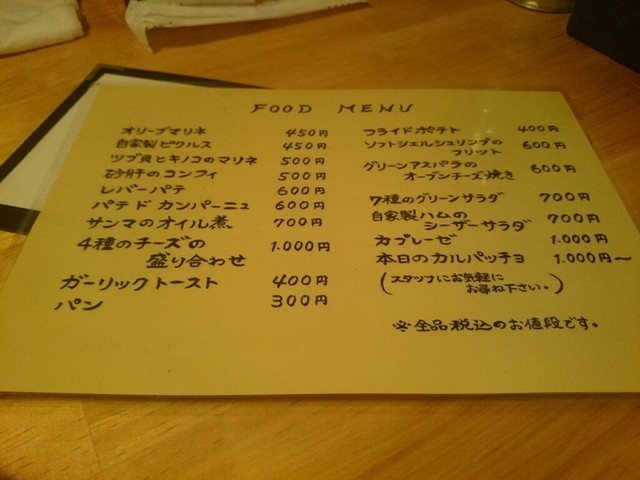 FOOD MENU
オリーブマリネ 450円
自家製ピクルス 450円
ツブ貝とキノコのマリネ 500円
砂肝のコンフィ 500円
レバーパテ 600円
パテドカンパーニュ 600円
サンマのオイル煮 700円
4種のチーズの
盛り合わせ 1.000円
ガーリックトースト 400円
パン 300円
フライドポテト 400円
ソフトシェルシュリンプの
フリット 600円
グリーンアスパラの
オーブンチーズ焼き 600円
7種のグリーンサラダ 700円
自家製ハムの
シーザーサラダ 700円
カプレーゼ 1.000円
本日のカルパッチョ 1.000円〜
(スタッフにお気軽に
お尋ね下さい。)
※全品税込のお値段です。